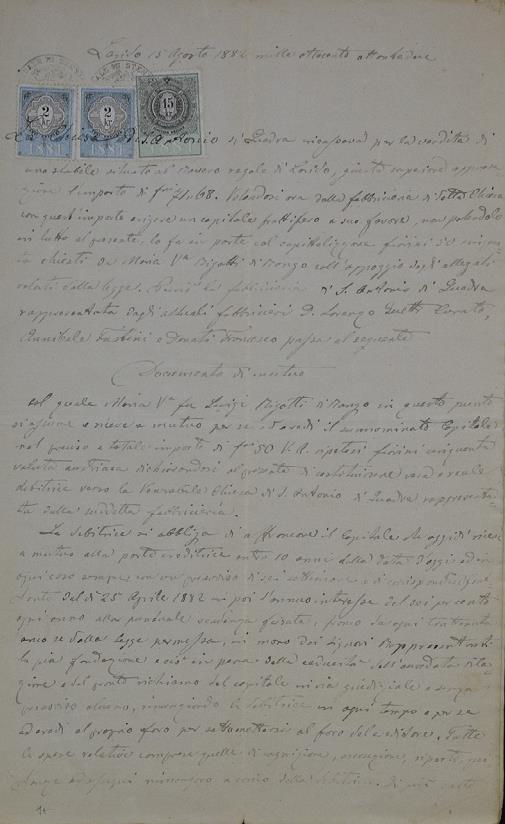 Lasido 15 Agosto 1882 mille ottocento ottantadue
2 kr. 2 kr. 15 kr.
1881 1881
La Chiesa di S. Antonio di Quadra incassava per la vendita di
uno stabile situato al Masero regale di Lasido, giusta superiore approva-
zione l'importo di f.ni 71.68. Volendosi ora dalla fabbriceria di detta Chiesa
con quest'importo erigere un capitale fruttifero a suo favore, non potendolo
in tutto al presente, lo fa in parte col capitalizzare fiorini 50
chiesti da Maria V.a Rigotti di coll'appoggio degli allegati
voluti dalla legge. la fabbriceria di S. Antonio di Quadra
rappresentata dagli attuali fabbricieri D. Lorenzo Curato,
Annibale e Donati Francesco passa al seguente
Documento di mutuo
col quale Maria V.a fu Luigi Rigotti di in questo punto
si assume e riceve a mutuo per se ed eredi il summominato Capitale
nel preciso e totale importo di f.ni 50 V.A. ripetesi fiorini cinquanta
valuta austriaca dichiarandosi al presente di costituirsene vera e reale
debitrice verso la Venerabile Chiesa di S. Antonio di Quadra rappresenta-
ta dalla suddetta fabbriceria.
La debitrice si obbliga di affrancare il Capitale che oggidì riceve
a mutuo alla parte creditrice entro 10 anni dalla data d'oggi ed in
ogni caso sempre con un preavviso di sei settimane e di corrispondere
dal dì 25 Aprile 1882 in poi l'annuo interesse del sei per cento
ogni anno alla puntuale scadenza fissata, franco da ogni trattenuta
anco se dalla legge permessa, in mano dei Signori Rappresentanti
la pia fondazione e ciò in pena della caducità dell'accordata dila-
zione e del pronto richiamo del capitale in via giudiziale e senza
preavviso alcuno, rinunciando la debitrice in ogni tempo e per se
ed eredi al proprio foro per sottomettersi al foro del creditore. Tutte
le spese relative comprese quelle di cognizione, esecuzione, riparto,
a carico della debitrice. Di più